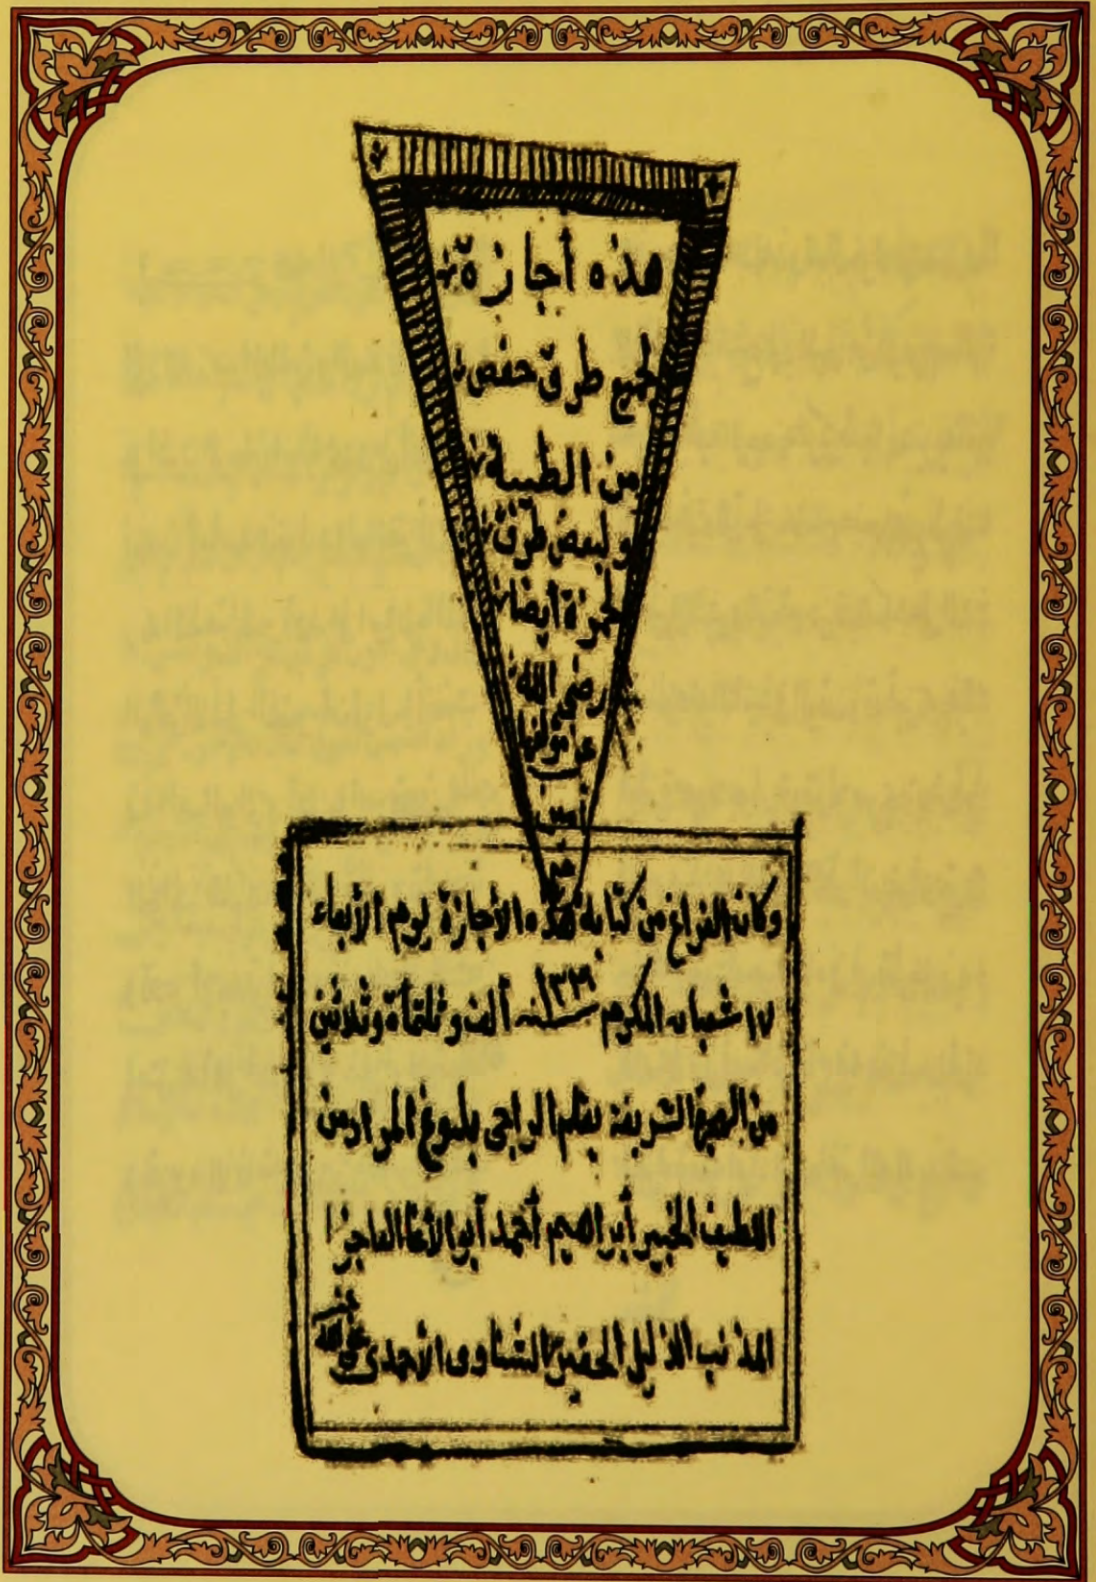 هذه أجازة
لجميع طرق حفص
من الطيبة
ولبعض طرق
لحمزة ايضا
رضى الله
عن مولفها
أمين
وكان الفراغ من كتابة هذه الأجازة يوم الأربعاء
١٧ شعبان المكرم سنة ألف وثلثمأة وثلاثين
من الهجرة الشريفة بقلم الراجى بلوغ المراد من
اللطيف الخبير أبراهيم أحمد العاجز
المذنب الذليل الحقير الشناوى الأحمدى